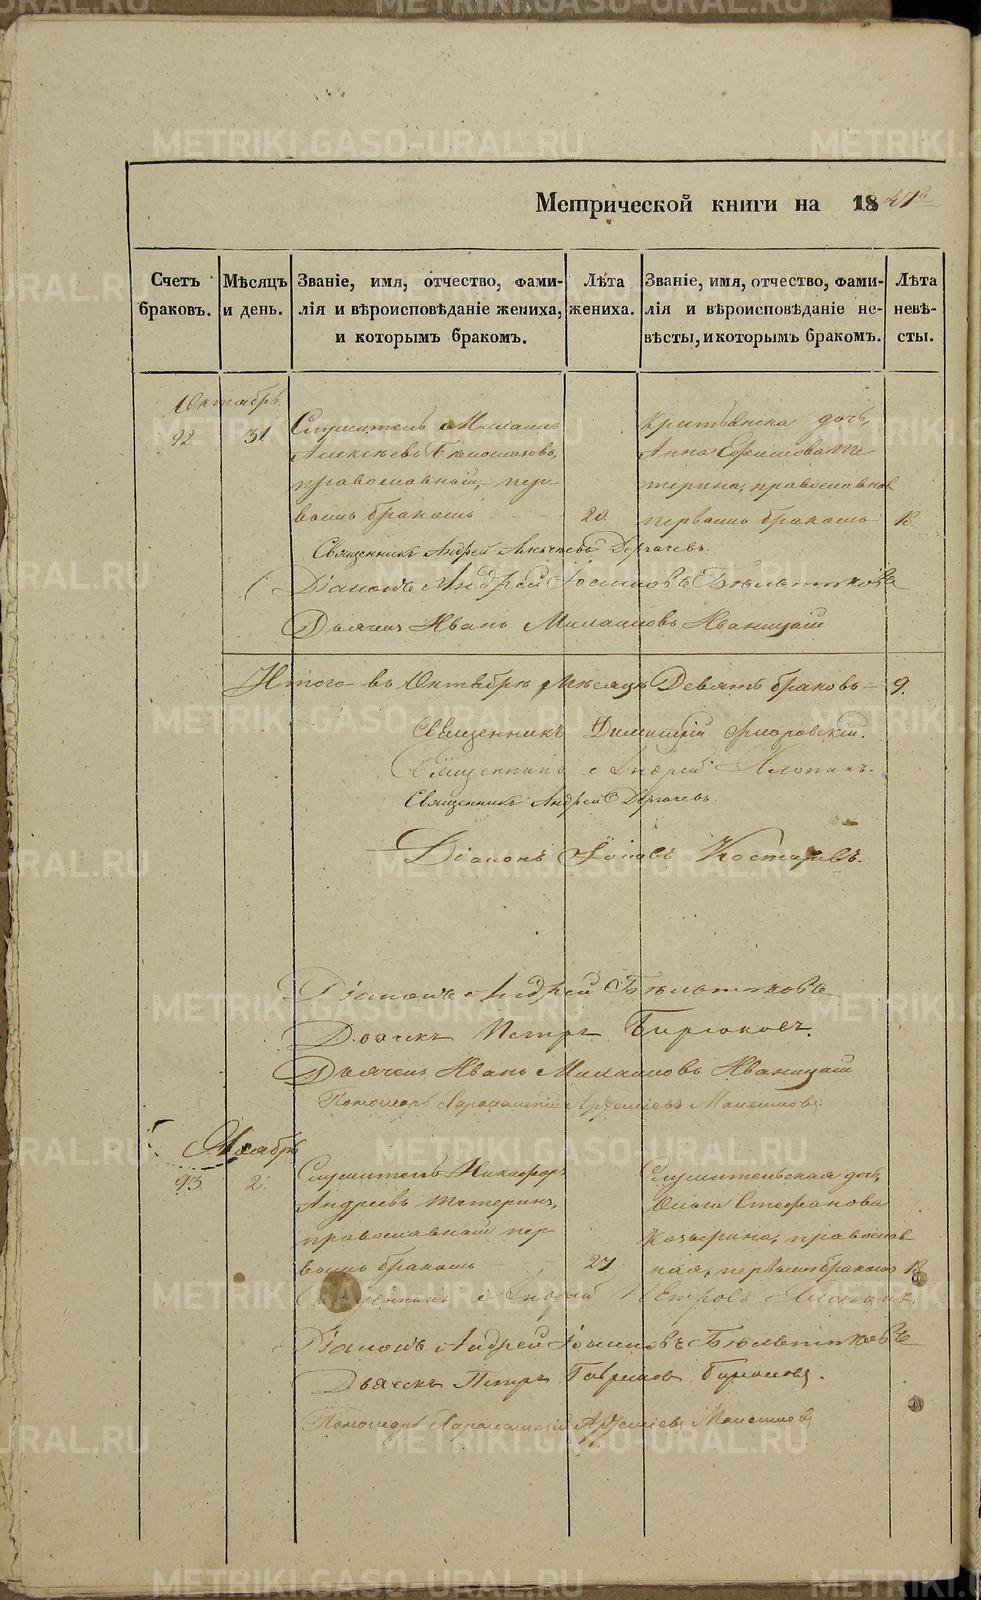 Метрической книги на 1847й
Счетъ браковъ.
Мѣсяцъ и день.
Званіе, имя, отчество, фами-
лія и вѣроисповѣданіе жениха,
и которымъ бракомъ.
Лѣта жениха.
Званіе, имя, отчество, фами-
лія и вѣроисповѣданіе не-
вѣсты, и которымъ бракомъ.
Лѣта невѣ-
сты.
Октябрь
92 31 Служитель Михаилъ
Алексѣевъ
православный, пер
вымъ бракомъ 20
Крестьянска дочь,
Анна Ефимова Те
терина, православная
первымъ бракомъ 18.
Священникъ Андрей Дергачевъ.
Діаконъ Андрей Іоакимовъ Бѣльтюковъ
Дьячекъ Иванъ Михаиловъ Иваницкій
Итого въ Октябрѣ Мѣсяцѣ Девять браковъ 9.
Священникъ Димитрій Флоровскій.
Священникъ Андрей Хлопинъ.
Священникъ Андрей Дергачевъ.
Діаконъ Іоаннъ Костаревъ.
Діаконъ Андрей Бѣльтюковъ
Дьячекъ Петръ Бирюковъ.
Дьячекъ Иванъ Михаиловъ Иваницкій
Пономарь Харалампій Артемьевъ
Ноябрь
93 2. Служитель Никифоръ
Андреевъ Тетеринъ,
православный пер
вымъ бракомъ 27
Служительская дочь,
Ольга Стефанова
православ
ная, первымъ бракомъ 18
Священникъ Андрей Петровъ Хлопинъ.
Діаконъ Андрей Іоакимовъ Бѣльтюковъ
Дьячекъ Петръ Гавриловъ Бирюковъ.
Пономарь Харалампій Артемьевъ
METRIKI.GASO-URAL.RU